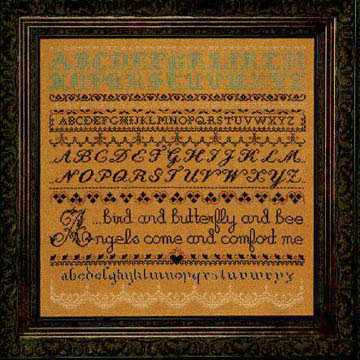 ABCDEFGHIJKLM
NOPQRSTUVWXYZ
ABCDEFGHIJKLMNOPQRSTUVWXYZ
ABCDEFGHIJKLM
NOPQRSTUVWXYZ
A ...bird and butterfly and bee
Angels come and comfort me
abcdefghijklmnopqrstuvwxyz